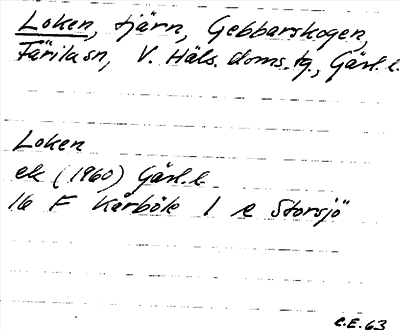 Loken, tjärn, Gebbarskogen,
Färila sn, V. Häls. doms.tg., Gävl. l.
Loken
ek (1960) Gävl. l
16 F Kårböle 1 e Storsjö
C.E. 63